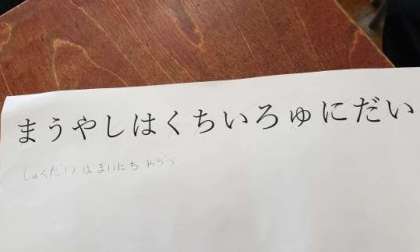 まうやしはくちいろゅにだい
しゅくだいは まいにち やろう